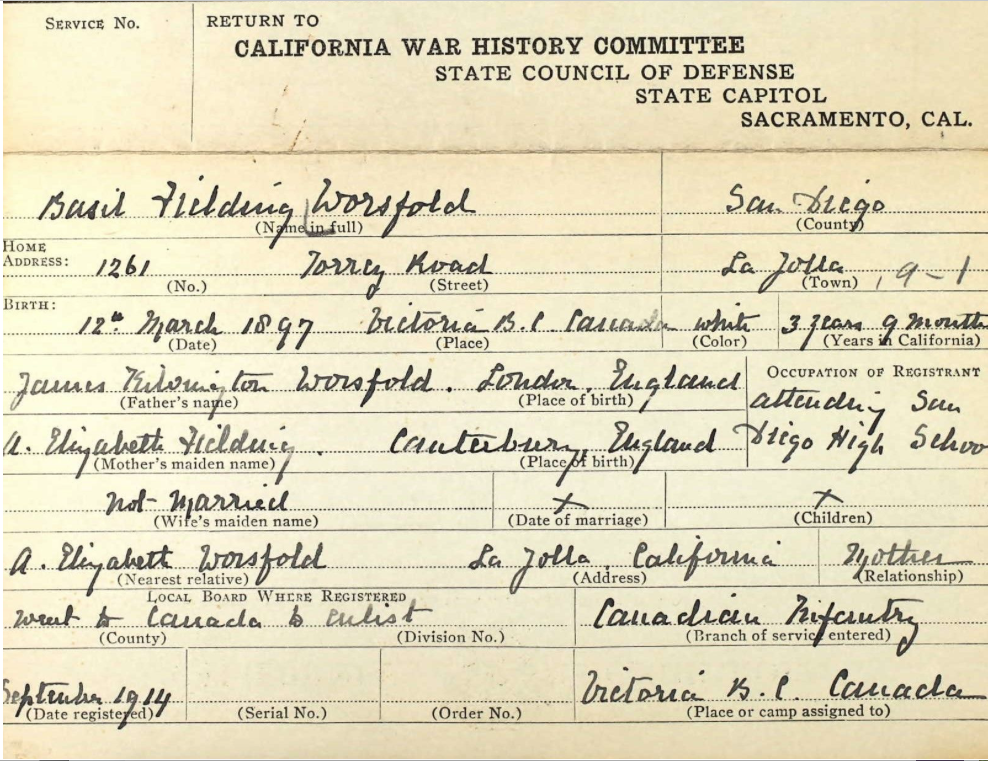 SERVICE No.
RETURN TO
CALIFORNIA WAR HISTORY COMMITTEE
STATE COUNCIL OF DEFENSE
STATE CAPITOL
SACRAMENTO, CAL.
Basil Fielding Worsfold San Diego
(Name in full) (County)
HOME
ADDRESS: 1261 Torrey Road La Jolla, 9-1
(No.) (Street) (Town)
BIRTH: 12th March 1897 Victoria B.C. Canada white 3 years 9 month
(Date) (Place) (Color) (Years in California)
James Worsfold. London, England OCCUPATION OF REGISTRANT
(Father's name) (Place of birth) attending San
A. Elizabeth Fielding. Canterbury, England Diego High Schoo
(Mother's maiden name) (Place of birth)
not married x x
(Wife's maiden name) (Date of marriage) (Children)
A. Elizabeth Worsfold La Jolla, California Mother
(Nearest relative) (Address) (Relationship)
LOCAL BOARD WHERE REGISTERED
went to Canada to enlist Canadian Infantry
(County) (Division No.) (Branch of service entered)
September 1914 Victoria B.C. Canada
(Date registered) (Serial No.) (Order No.) (Place or camp assigned to)